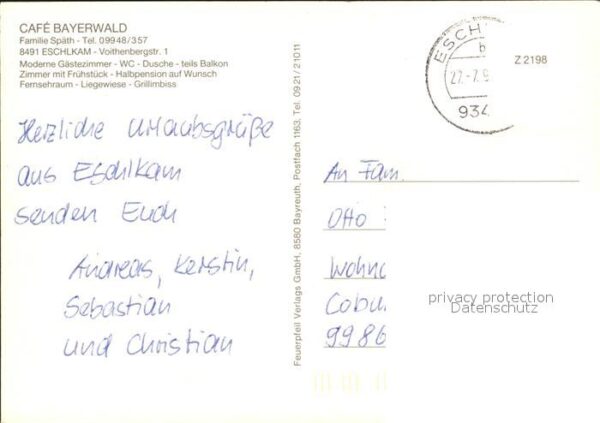 CAFÉ BAYERWALD
Familie Späth - Tel. 09948/357
8491 ESCHLKAM - Voithenbergstr. 1
Moderne Gästezimmer - WC - Dusche - teils Balkon
Zimmer mit Frühstück - Halbpension auf Wunsch
Fernsehraum - Liegewiese - Grillimbiss
Herzliche Urlaubsgrüße
aus Eschlkam
senden Euch
Andreas, Kerstin,
Sebastian
und Christian
Feuerpfeil Verlags GmbH, 8580 Bayreuth, Postfach 1163, Tel. 0921/21011
ESCH
b
27.-7.9
934
Z 2198
An Fam.
Otto
Wohnc
Cobu
9986
privacy protection
Datenschutz